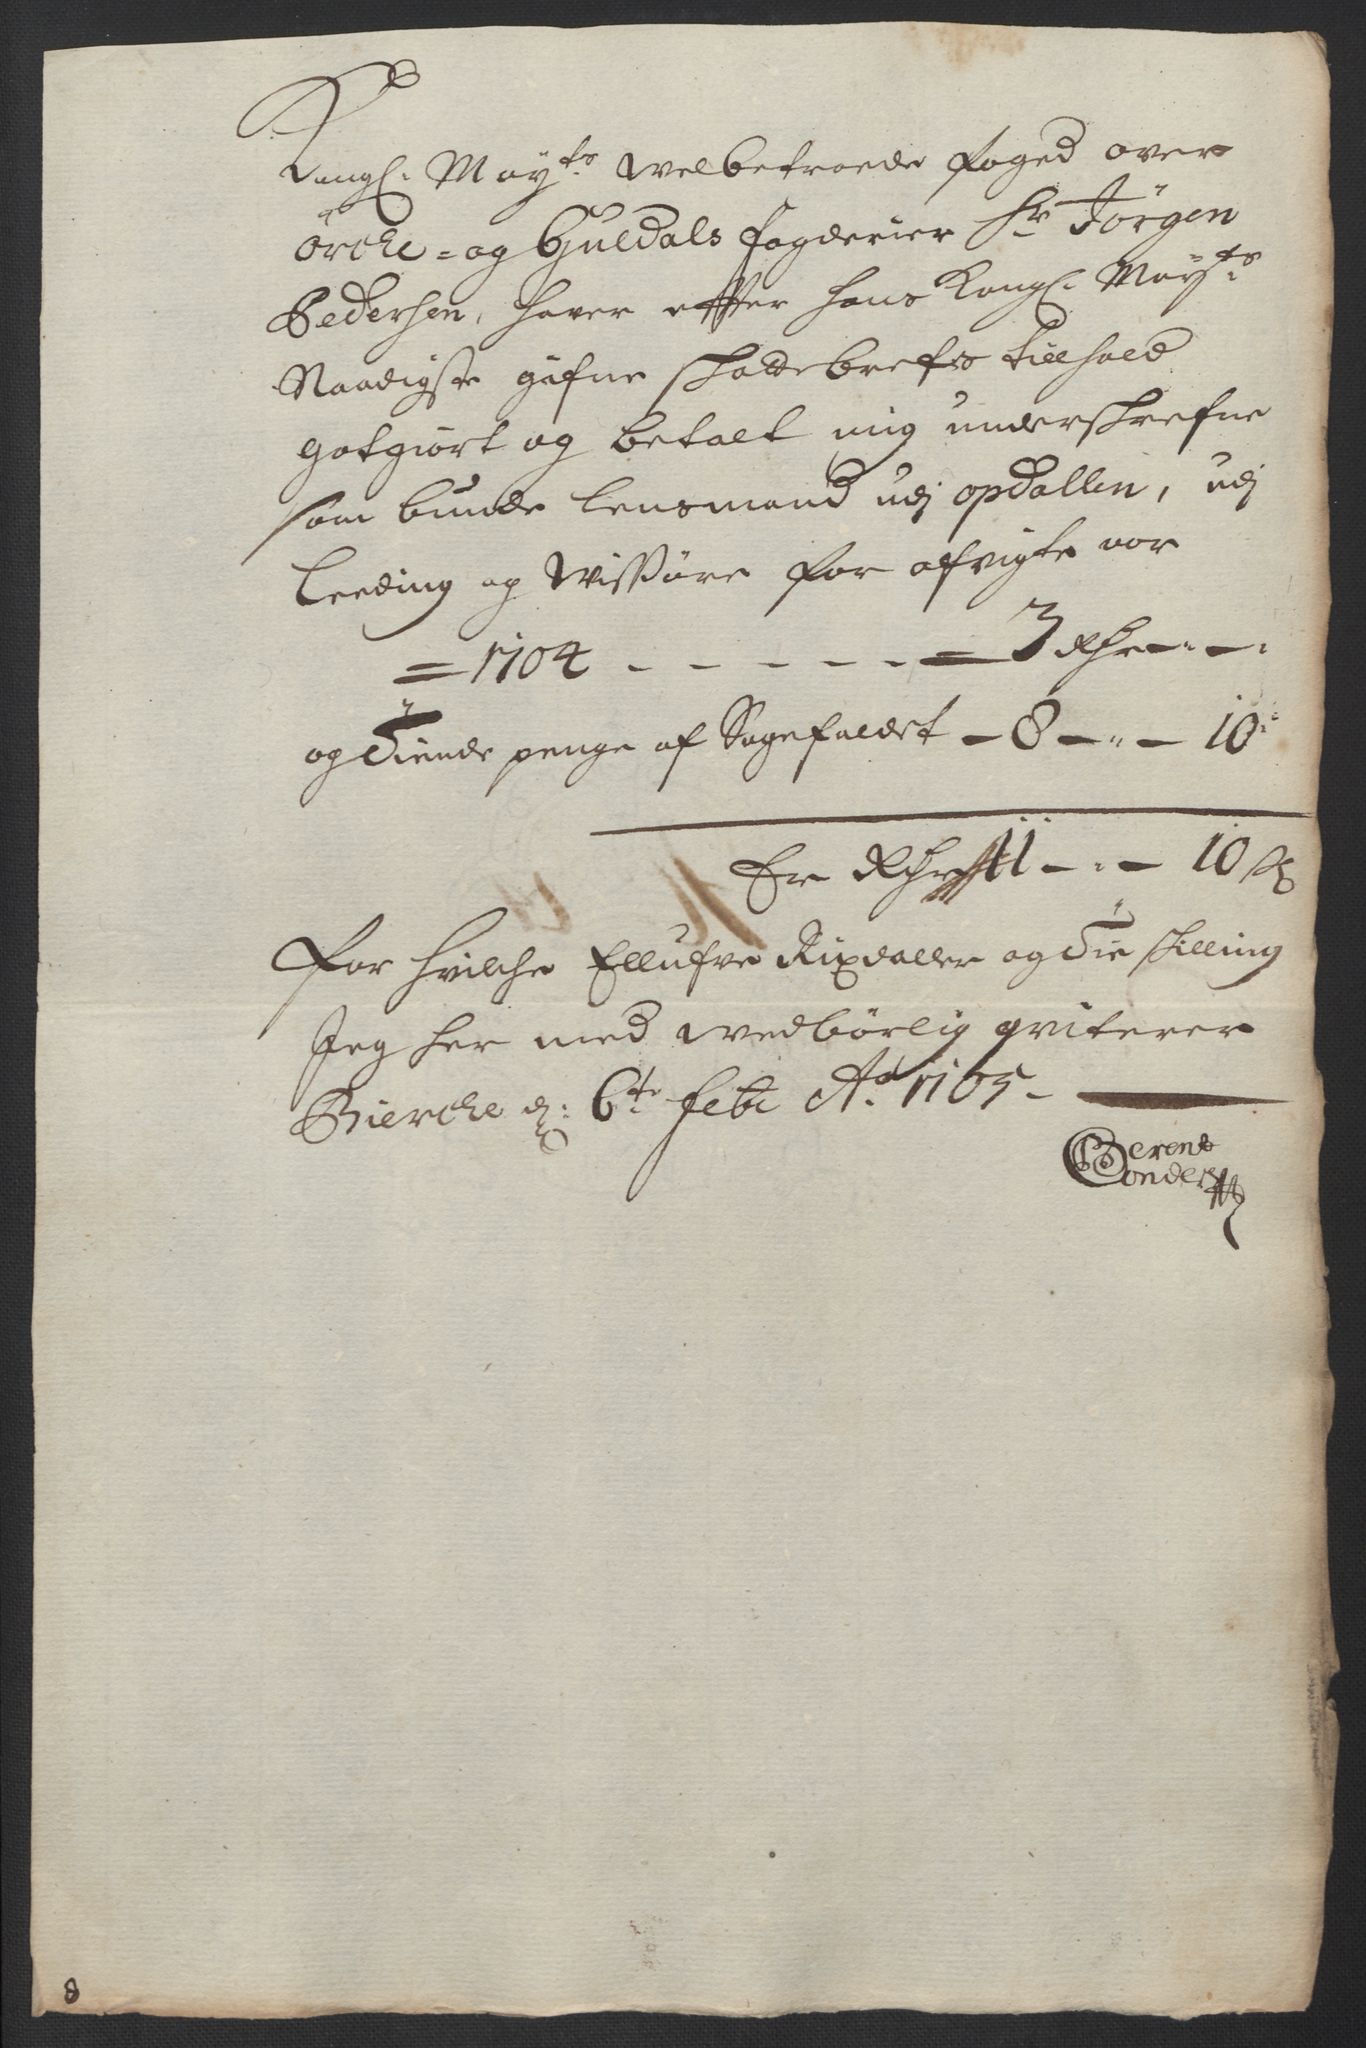 Kongl. May.ts welbetroede foged over
Örche- og Guldals fogderier Sr Jörgen
Pedersen, hafver efter hans Kongl. May.ts
Naadigste gifne skattebrefs tillhold
gotgiort og betalt mig underskrefne
som bunde lensmand udj opdallen, udj
Leeding og Wissöre for afvigte aar
= 1704 - - - - - = 3 Rdr - " - "
og Tiende penge af Sagefaldet - 8 - " - 10
Er Rdr 11 - " - 10 s
For hvilche Ellufve Rixdaller og Tie skilling
Jeg her med wedbörlig qviterer
Bierche d: 6te febr Ao 1705 -
Berent
8